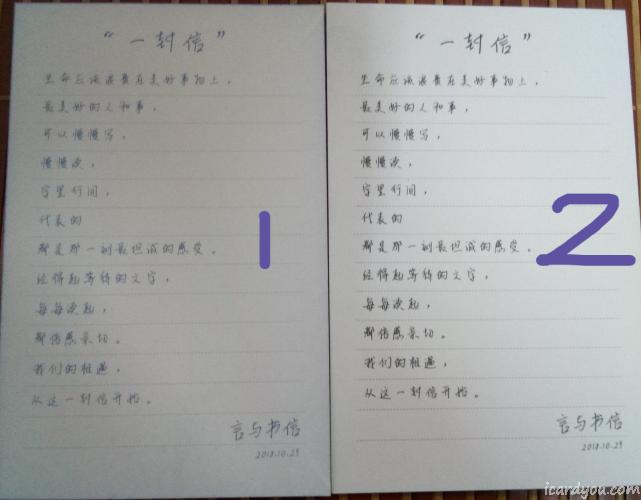 “一封信”
生命应该浪费在美好事物上，
最美好的人和事，
可以慢慢写，
慢慢读，
字里行间，
代表的
都是那一刻最坦诚的感受。
经得起等待的文字，
每每读起，
都倍感亲切。
我们的相遇，
从这一封信开始。
言与书信
2018.10.29
1
“一封信”
生命应该浪费在美好事物上，
最美好的人和事，
可以慢慢写，
慢慢读，
字里行间，
代表的
都是那一刻最坦诚的感受。
经得起等待的文字，
每每读起，
都倍感亲切。
我们的相遇，
从这一封信开始。
言与书信
2018.10.29
2
icardyou.com